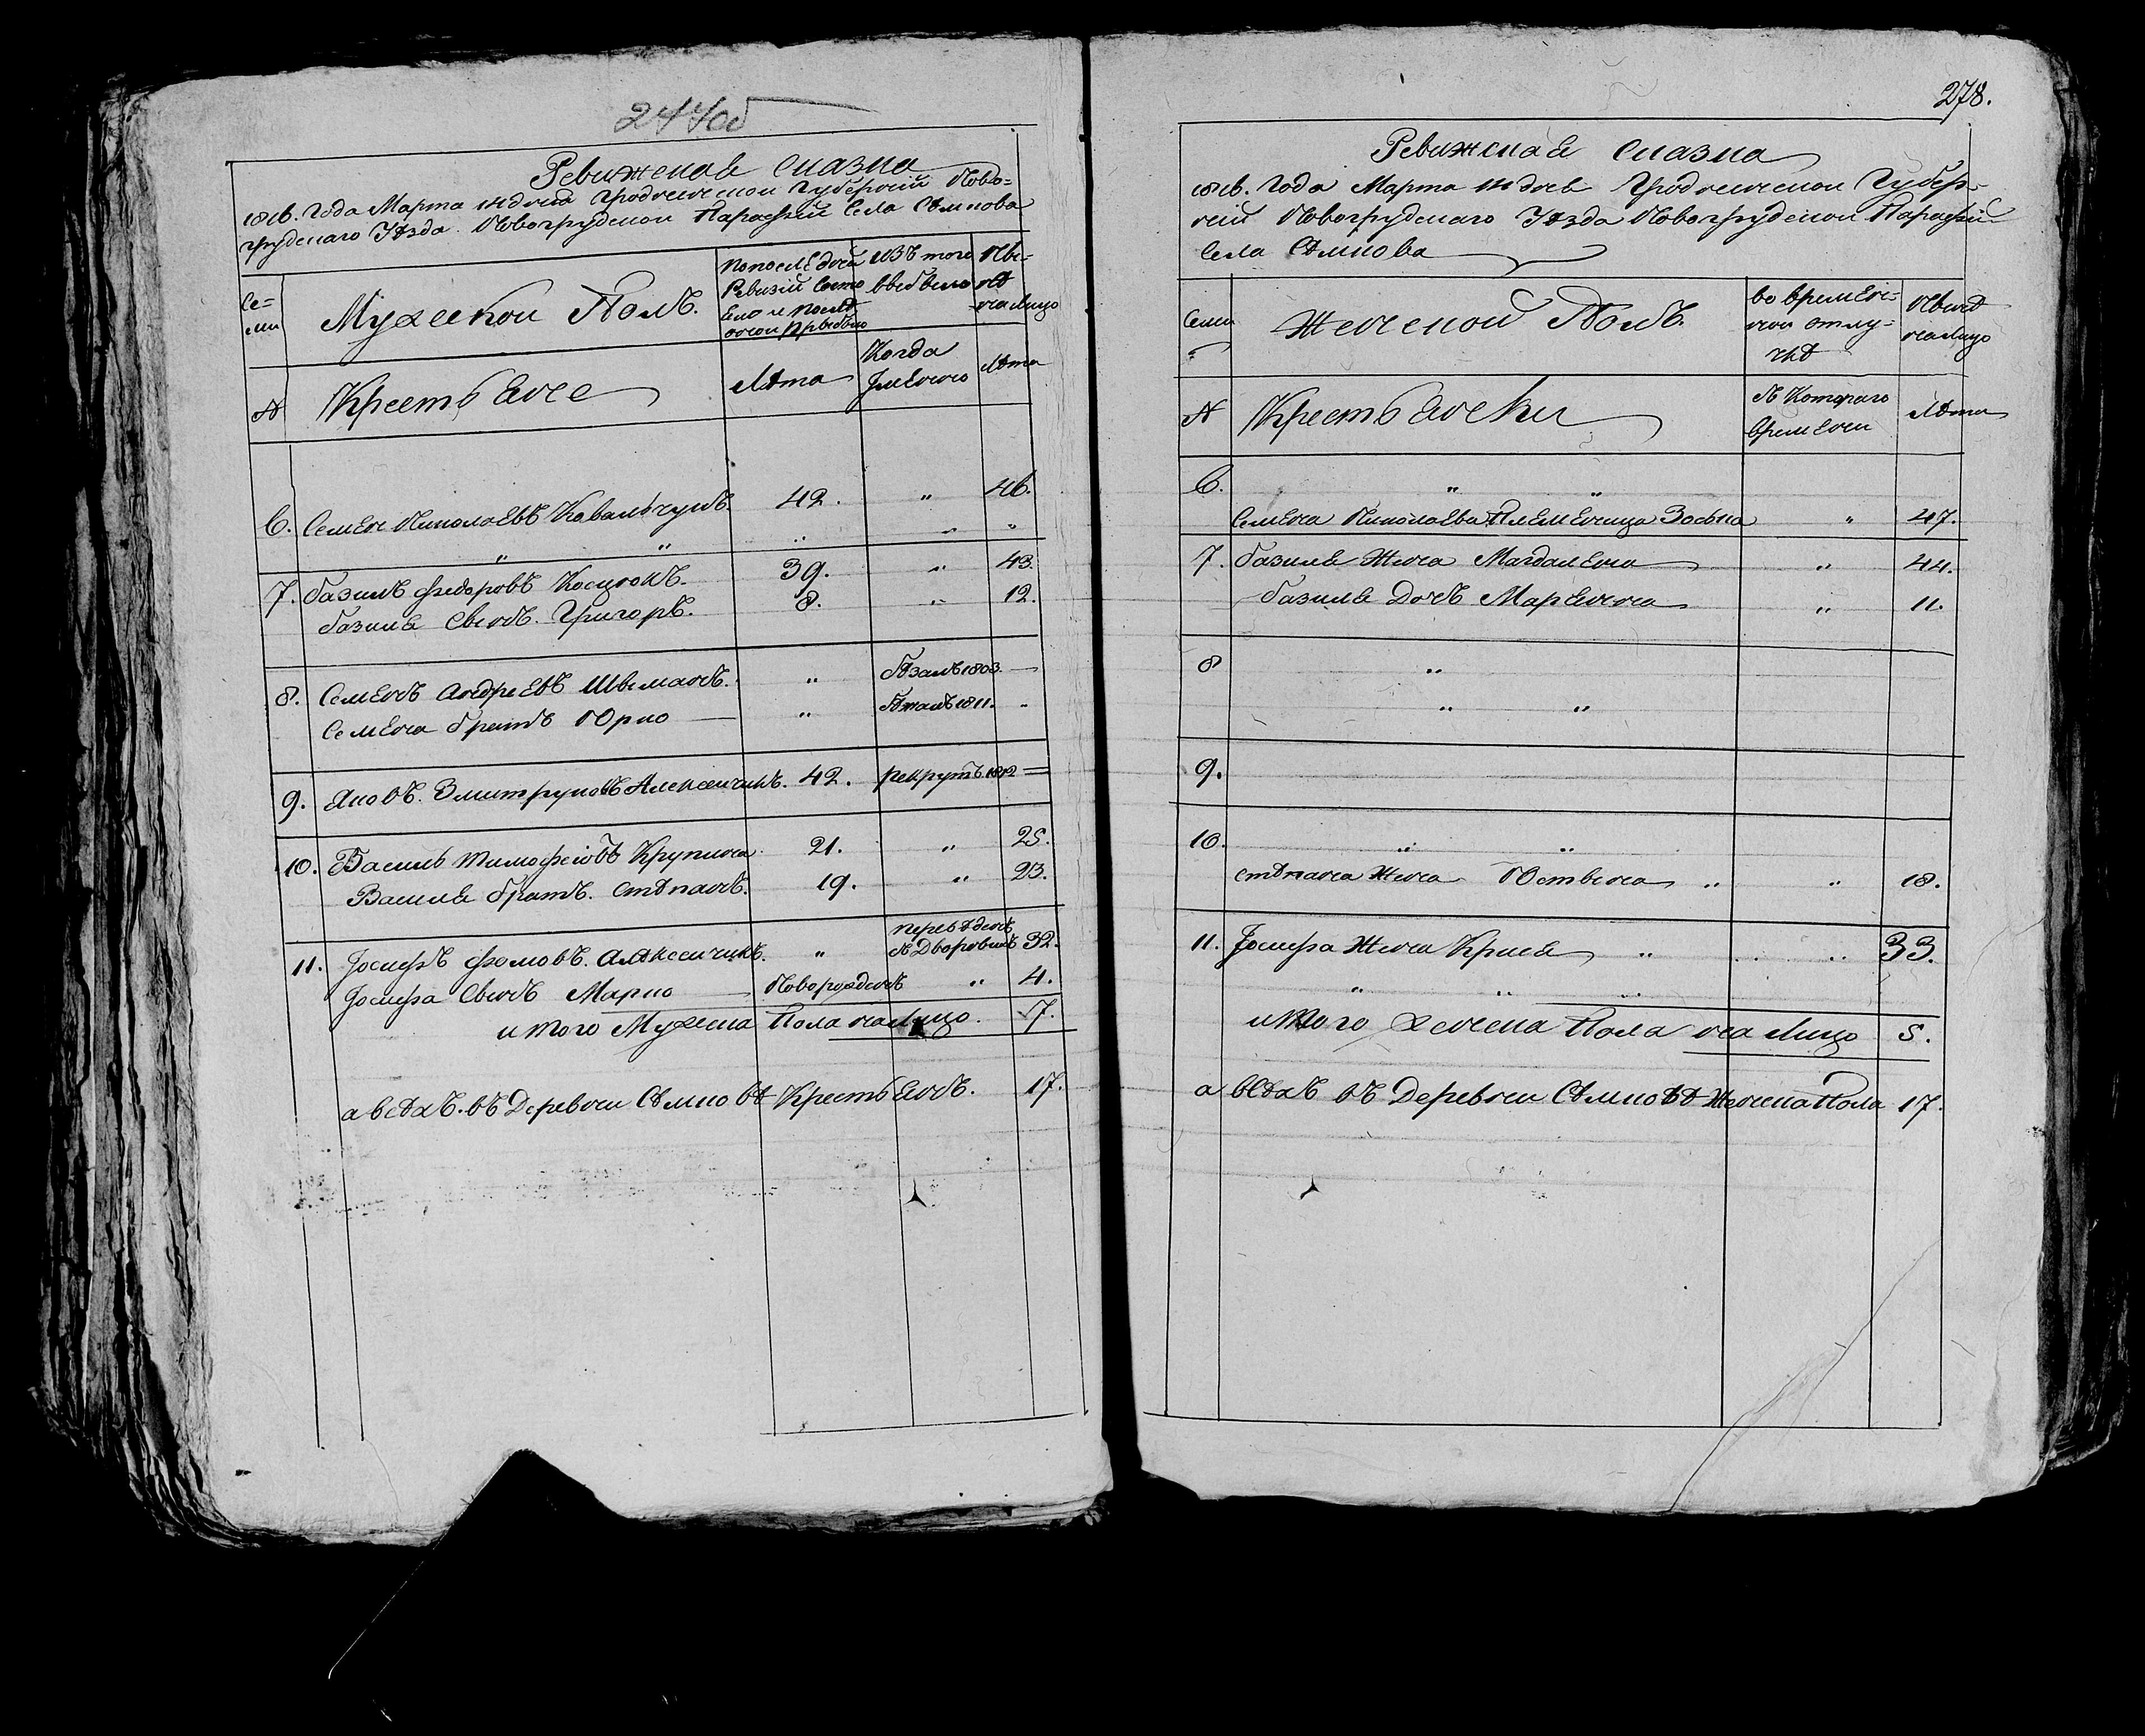 277об
Ревижская сказка
1816. Года Марта дня Гродненской Губерній Ново=
грудскаго Уѣзда. Новогрудской Парафіи Села Сѣлкова
Се=
ми
Мужеской Полъ.
по последней
Ревизіи состо
яло и послѣ
оной прибыло
изъ того
выбыло
Нынѣ
на лицо
№
Крестьяне
Лѣта
Когда
имянно
Лѣта
6. Семен Николаевъ Ковальчукъ. 42. " 46.
" " " " "
7. Базылъ Федоровъ Косцюкъ. 39. " 43.
Базыля Сынъ. Григоръ. 8. " 12.
8. Семенъ Андреевъ Швеманъ. " бѣжалъ 1803. —
Семена братъ Юрко — " бѣжалъ 1811. "
9. Яковъ. Змитруковъ Алексейчикъ. 42. рекрутъ 1812 =
10. Василь Тимофеіовъ Крупина. 21. " 25.
Василя братъ. Стѣпанъ. 19. " 23.
11. Іосифъ Фомовъ. Алѣксейчикъ. " переведенъ
въ Дворовыхъ 32.
Іосифа Сынъ Марко — Новорожденъ " 4.
итого Мужеска Пола на лицо. 7.
а всѣхъ. въ Деревни Сѣлковѣ Крестьянъ. 17.
278.
Ревижская сказка
1816. Года Марта дня Гродненской Губер-
ніи Новогрудскаго Уѣзда Новогрудской Парафіи
Села Сѣлкова
Семи
Женской Полъ.
во времен-
ной отлу-
чкѣ
Нынѣ
на лицо
№
Крестьянки
Съ Котораго
времени
Лѣта
6. " "
Семена Николаева Племеница Зоська " 47.
7. Базыля Жена Магдалена " 44.
Базыля Дочъ Марьяна " 11.
8 "
" "
9.
10. " "
Стѣпана Жена Юстына " " 18.
11. Іосифа Жена Крыся " " " 33.
" " "
итого женска Пола на лицо 5.
а всѣхъ въ Деревни Сѣлковѣ Женска Пола 17.